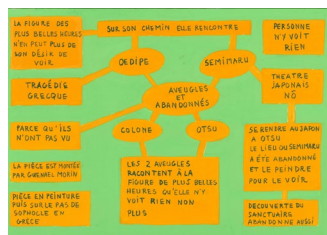 LA FIGURE DES
PLUS BELLES HEURES
N'EN PEUT PLUS DE
SON DÉSIR DE
VOIR
SUR SON CHEMIN ELLE RENCONTRE
PERSONNE
N'Y VOIT
RIEN
OEDIPE
SEMIMARU
TRAGÉDIE
GRECQUE
AVEUGLES
ET
ABANDONNÉS
THEATRE
JAPONAIS
NÔ
PARCE QU'ILS
N'ONT PAS VU
COLONE
OTSU
SE RENDRE AU JAPON
A OTSU
LE LIEU OU SEMIMARU
A ÉTÉ ABANDONNÉ
ET LE PEINDRE
POUR LE VOIR
LA PIÈCE EST MONTÉE
PAR GWENAEL MORIN
LES 2 AVEUGLES
RACONTENT À LA
FIGURE DE PLUS BELLES
HEURES QU'ELLE N'Y
VOIT RIEN NON
PLUS
PIÈCE EN PEINTURE
PUIS SUR LE PAS DE
SOPHOCLE EN
GRÈCE
DÉCOUVERTE DU
SANCTUAIRE
ABANDONNE AUSSI